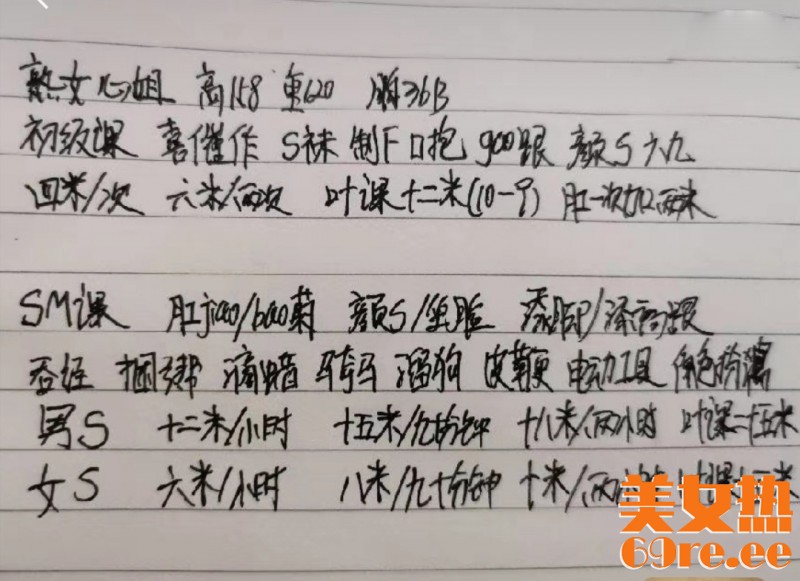 熟女心姐 高158 重620 胸36B
初级课 喜催作 S袜 制F 口抱 gao跟 颜S 六九
四米/次 六米/两次 叶课十二米(10-9) 肛一次加两米
SM课 肛jiao/bao菊 颜S/坐脸 添脚/添高跟
吞经 捆绑 滴蜡 骑马 溜狗 皮鞭 电动工具 角色扮演
男S 十二米/小时 十五米/九十分钟 十八米/两小时 叶课二十五米
女S 六米/小时 八米/九十分钟 十米/两小时
美女热
69re.ee